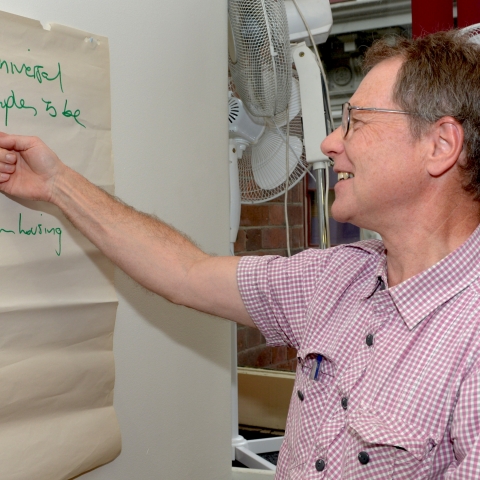 niversal
ples to be
housing